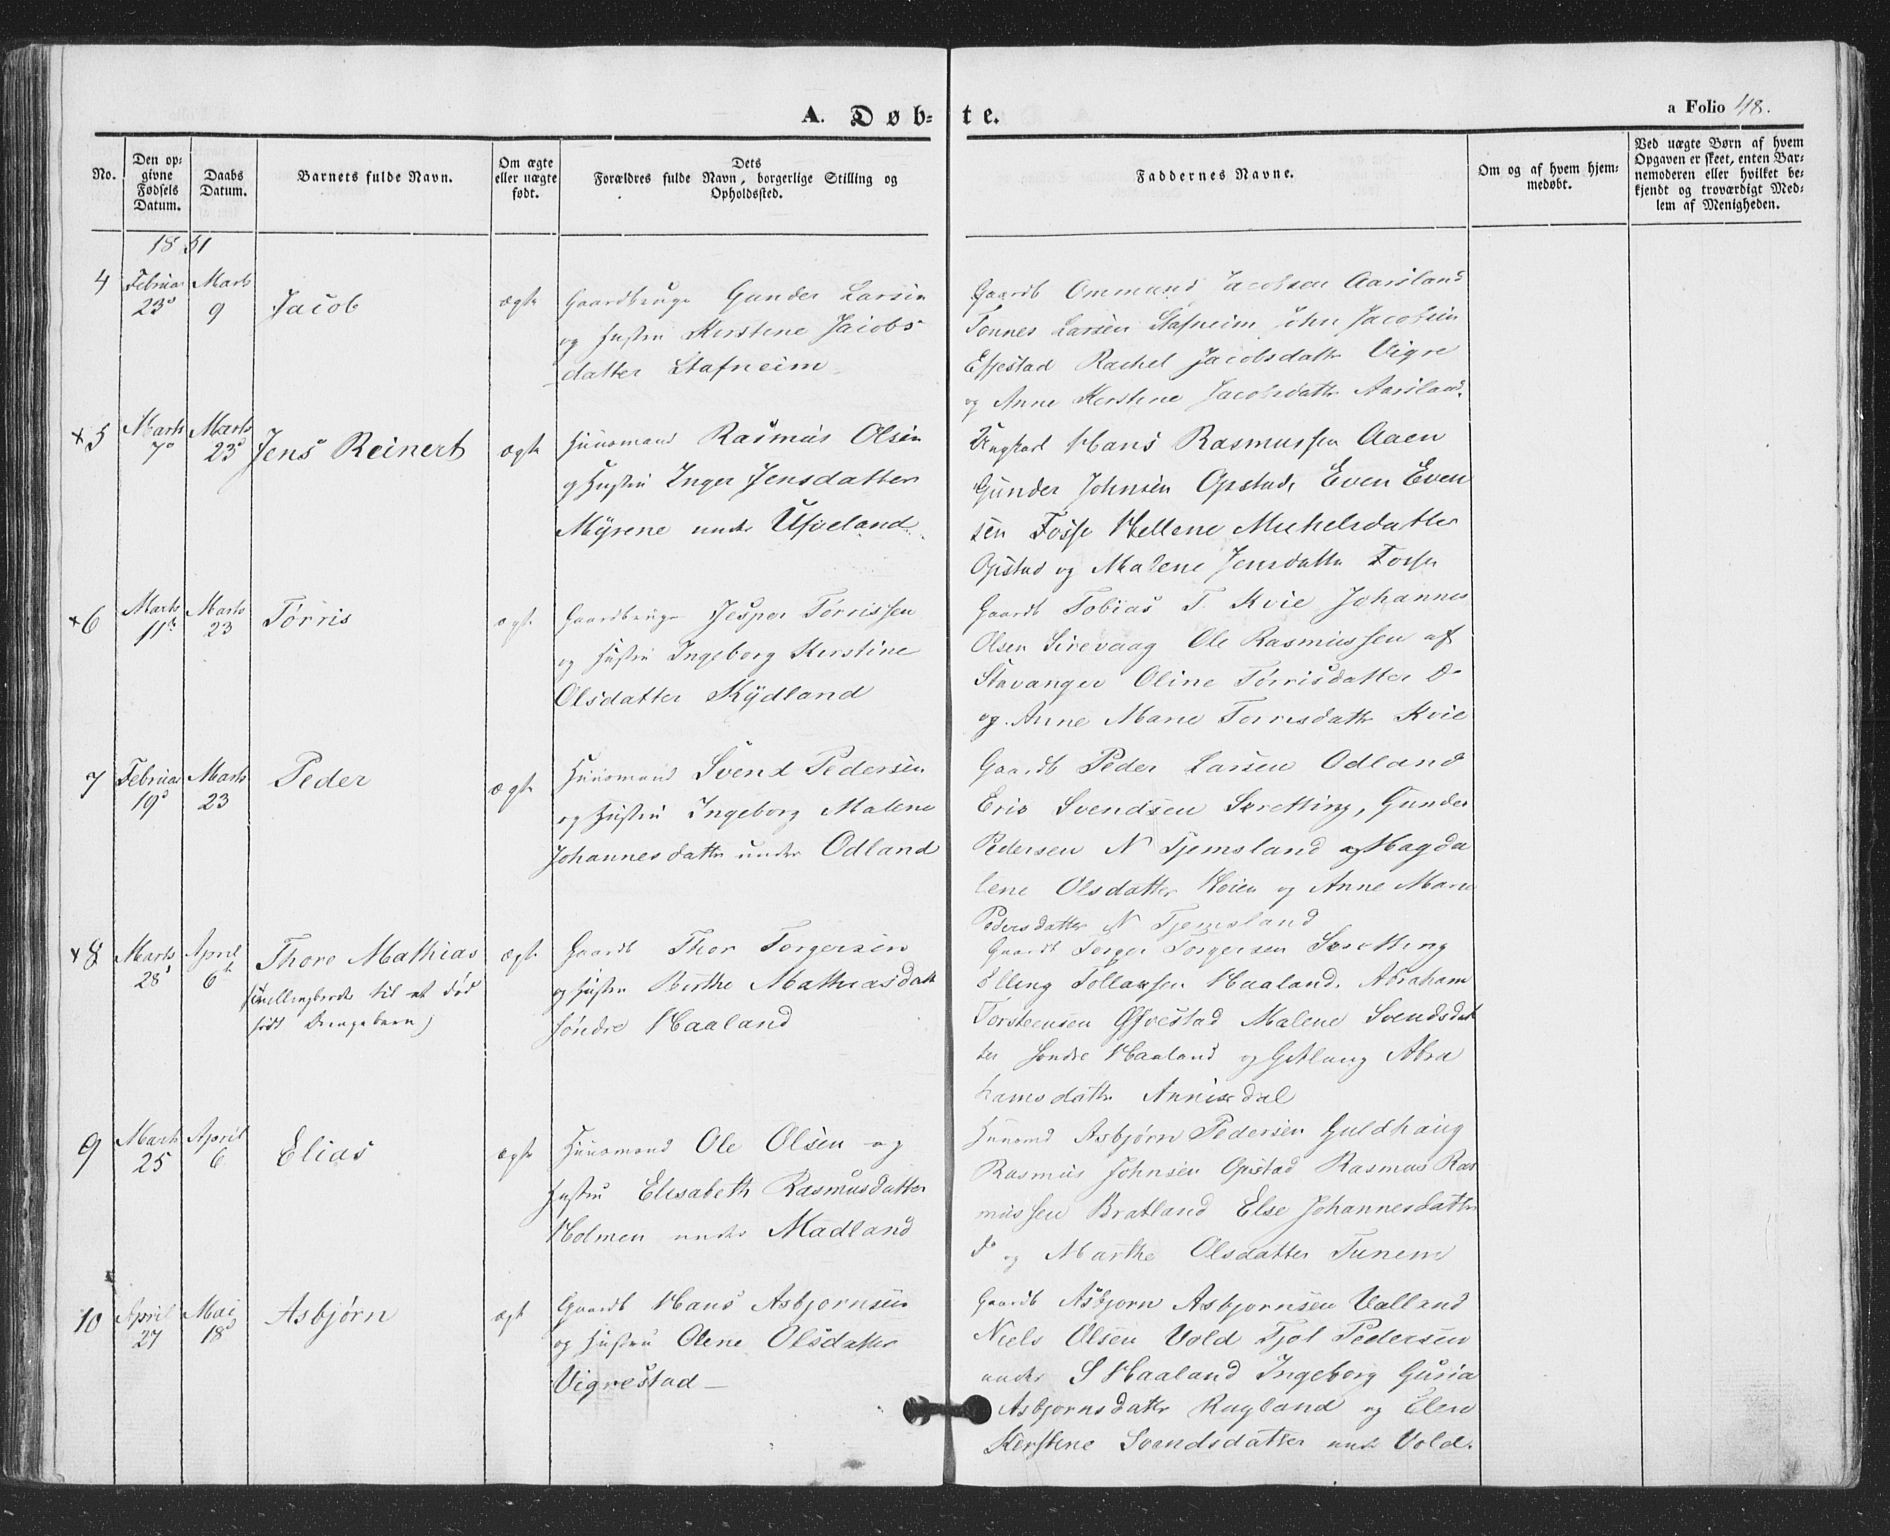 A. Døb-te.
a Folio 48.
No.
Den opgivne Fødsels Datum.
Daabs Datum.
Barnets fulde Navn.
Om ægte eller uægte født.
Dets Forældres fulde Navn, borgerlige Stilling og Opholdssted.
Faddernes Navne.
Om og af hvem hjemmedøbt.
Ved uægte Børn af hvem Opgaven er skeet, enten Barnemoderen eller hvilket bekjendt og troværdigt Medlem af Menigheden.
1851
4
Februar 23d
Marts 9
Jacob
ægte
Gaardbruger Gunder Larsen
og Hustru Kerstene Jacobs
datter Stafneim
Gaardb Ommund Jacobsen Aarsland
Tønnes Larsen Stafneim Jacobsen
Espestad Rachel Jacobsdatter Vigre
og Anne Kerstene Jacobsdatter Aarsland.
×5
Marts 7de
Marts 23d
Jens Reinert
ægte
Huusmand Rasmus Olsen
og Hustru Inger Jensdatter
Myrene under Udveland.
Ungkarl Hans Rasmussen Aaen
Gunder Johnsen Opstad, Even Even
sen Fosse Hellene Michelsdatter
Opstad og Malene Jensdatter Fosse
×6
Marts 11te
Marts 23
Tørris
ægte
Gaardbruger Jesper Tørrissen
og Hustru Ingeborg Kerstine
Olsdatter Kydland
Gaardb Tobias T. Kvie Johannes
Olsen Sirevaag Ole Rasmussen af
Stavanger Oline Tørrisdatter Do
og Anne Marie Tørrisdatter Kvie
7
Februar 19d
Marts 23
Peder
ægte
Huusmand Svend Pedersen
og Hustru Ingeborg Malene
Johannesdatter under Odland
Gaardb Peder Larsen Odland
Eric Svendsen Scretting, Gunder
Pedersen N Tjemsland og Magda
lene Olsdatter Høien og Anne Marie
Pedersdatter N Tjemsland
×8
Marts 28d
April 6te
Thore Mathias
(Tvillingbroder til et død
født Drengebarn)
ægte
Gaardb Thor Torgersen
og Hustru Berthe Mathiasdatt
søndre Haaland
Gaardb Torger Torgersen Scretting
Elling Tollaksen Haaland. Abraham
Torsteensen Øfvestad Malene Svendsdat
ter søndre Haaland og Abra
hamsdatter Annisdal
9
Marts 25
April 6
Elias
ægte
Huusmand Ole Olsen og
Hustru Elisabeth Rasmusdatter
Holmen under Madland
Huusmd Asbjørn Pedersen Guldhaug
Rasmus Johnsen Opstad Rasmus Ras
mussen Bratland Else Johannesdatter
do og Marthe Olsdatter Tunem
10
April 27
Mai 18d
Asbjørn
ægte
Gaardb Hans Asbjørnsen
og Hustru Olene Olsdatter
Vigrestad
Gaardb Asbjørn Asbjørnsen Valland
Niels Olsen Vold Tjøl Pedersen
under S Haaland Ingeborg Guria
Asbjørnsdatter Rugland og Elen
Kerstene Svendsdatter und Vold.